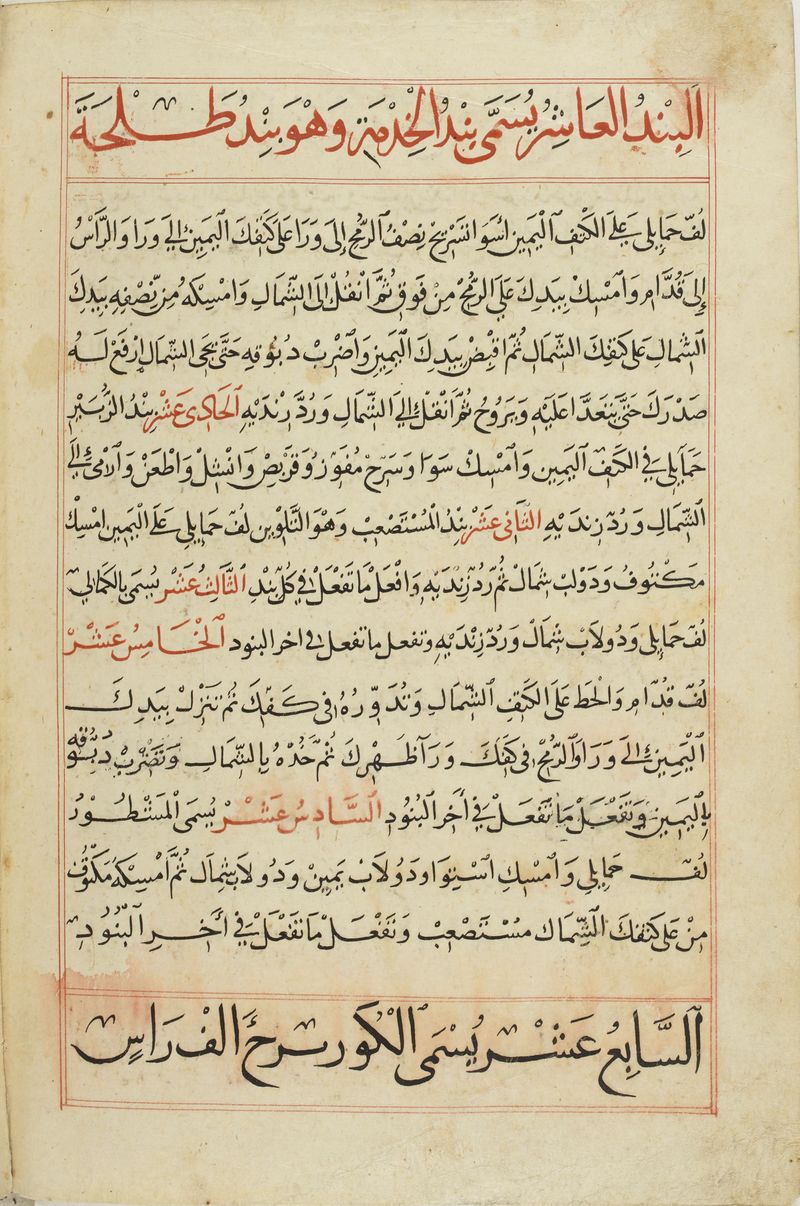 البند العاشر يسمى بند الخدمة وهو بند طلحة
لف حمايلى على الكتف اليمين اسوا تسريح نصف الرمح إلى ورا على كتفك اليمين الى ورا والراس
إلى قدام وامسك بيدك على الرمح من فوق ثم انقل الى الشمال وامسكه من نصفه بيدك
الشمال على كتفك الشمال ثم اقبض بيدك اليمين واضرب دبوقه حتى يجى الشمال ارفع له
صدرك حتى يتعدا عليه ويروح ثم انقل الى الشمال ورد زنديه الحادى عشر بند الزبير
حمايلى فى الكتف اليمين وامسك سوا وسرح مفوز وقربص وانتل واطعن والامى الى
الشمال ورد زنديه الثانى عشر بند المستصعب وهو التلوين لف حمايلى على اليمين امسك
مكتوف ودولب شمال ثم رد زنديه وافعل ما تفعل فى كل بند الثالث عشر يسمى بالكمالى
لف حمايلى ودولاب شمال ورد زنديه وتفعل ما تفعل فى اخر البنود الخامس عشر
لف قدام والحط على الكتف الشمال وتدوره فى كتفك ثم تنزل بيدك
اليمين الى ورا والرمح فى كتفك ورا ظهرك ثم خذه بالشمال وتضرب دبوقه
باليمين وتفعل ما تفعل فى أخر البنود السادس عشر يسمى المشطور
لف حمايلى وامسك استوا ودولاب يمين ودولاب شمال ثم امسكه مكتوف
من على كتفك الشمال مستصعب وتفعل ما تفعل فى أخر البنود
السابع عشر يسمى الكور سرح الفراس